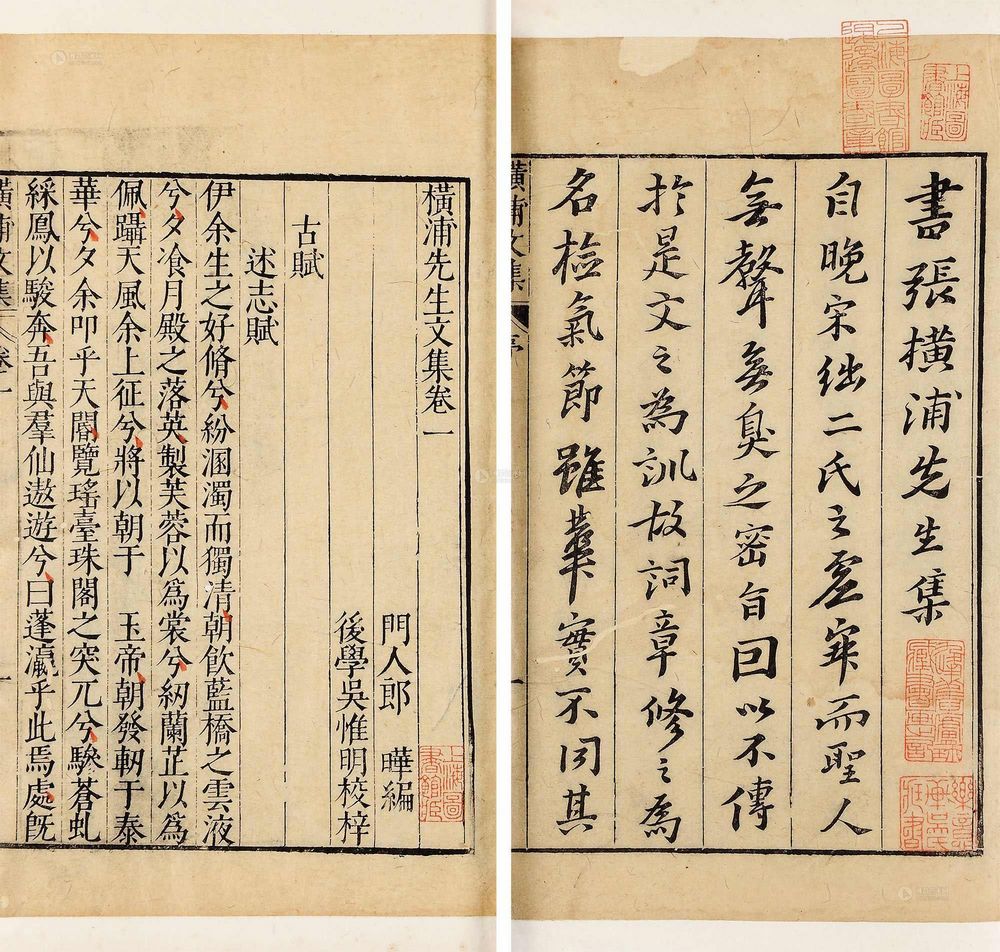 上海圖書館退還圖書章
上海圖書館藏
書張橫浦先生集
自晚宋絀二氏之虛寂而聖人
無聲無臭之密旨回以不傳
於是文之為訓故詞章修之為
名檢氣節雖華實不同其
橫浦文集 序 一
橫浦先生文集卷一
門人郎 曄編
上海圖書館藏
後學吳惟明校梓
古賦
述志賦
伊余生之好脩兮紛溷濁而獨清朝飮藍橋之雲液
兮夕飡月殿之落英製芙蓉以爲裳兮紉蘭芷以爲
佩躡天風余上征兮將以朝于 玉帝朝發軔于泰
華兮夕余叩乎天閽覽瑤臺珠閣之突兀兮驂蒼虬
綵鳳以駿奔吾與羣仙遨遊兮曰蓬瀛乎此焉處旣
橫浦文集 卷一 一